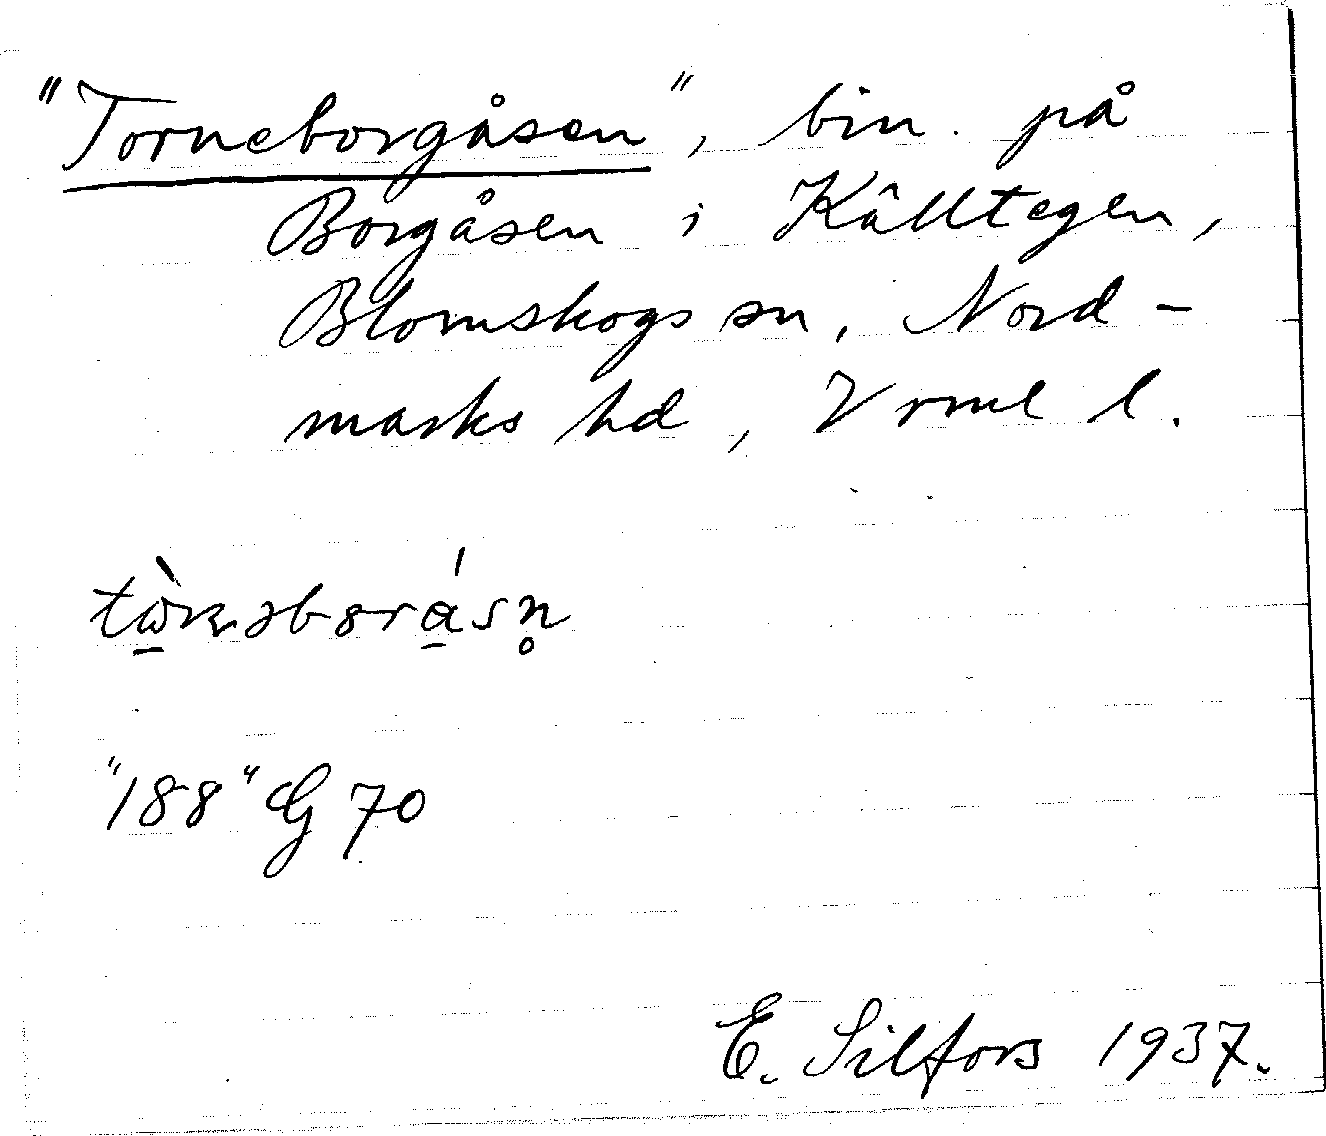 "Torneborgåsen", bin. på
Borgåsen i Källtegen,
Blomskogs sn, Nord-
marks hd, Vrml l.
"188" G 70
E. Silfors 1937.